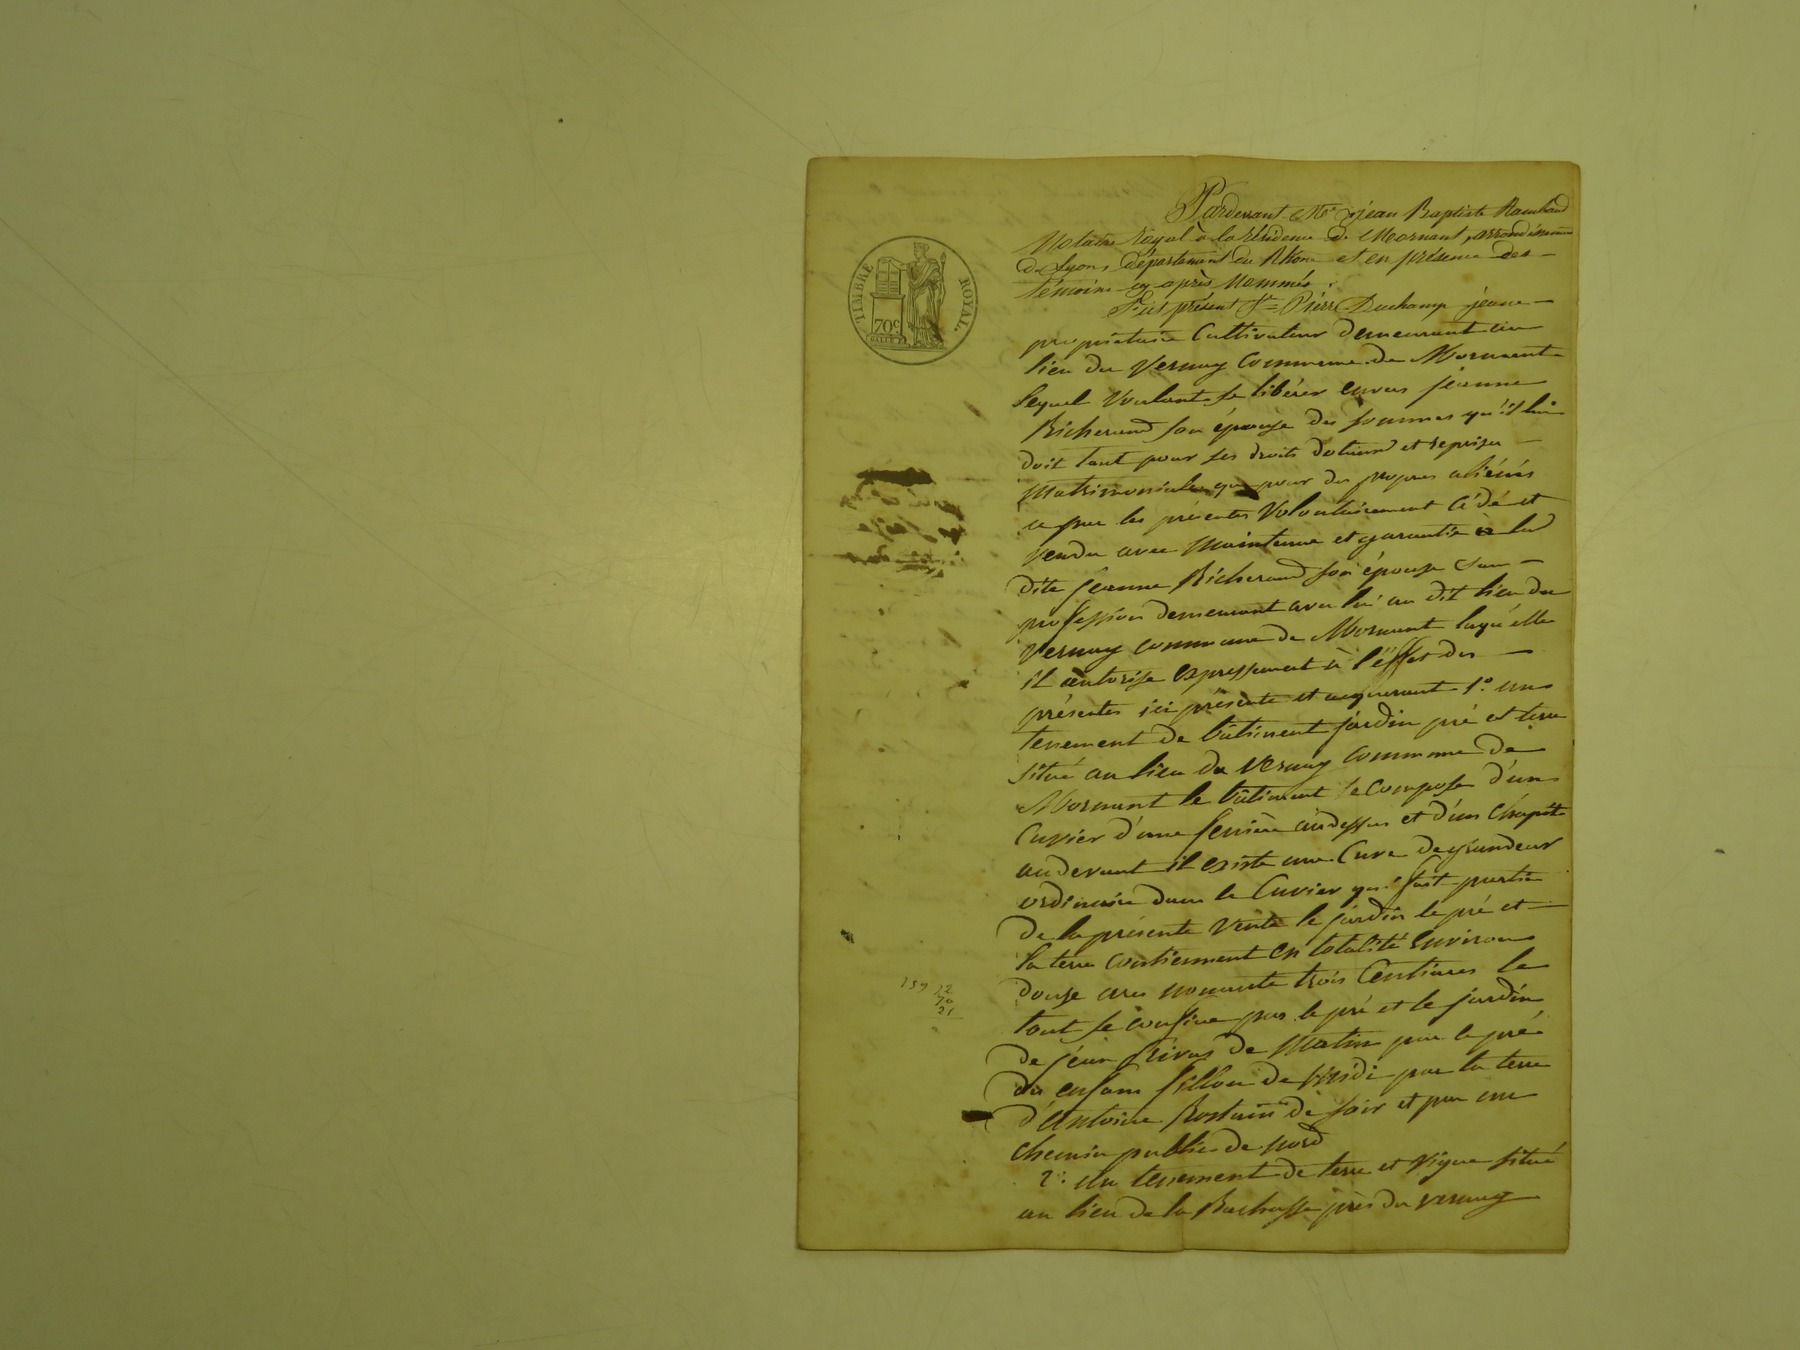 Pardevant Me jean Baptiste Rambaud
Notaire Royal à la résidence de Mornant, arrondissement
de Lyon, département du Rhône et en présence des
témoins cy après Nommés.
Fut présent Sr Pierre Duchamp jeune
propriétaire Cultivateur demeurant au
lieu du Vernay Commune de Mornant
lequel Voulant se libérer envers jeanne
Richerand son épouse des sommes qu'il lui
doit tant pour ses droits dotaux et reprises
Matrimoniales que pour des propres aliénés
a par les présentes Volontairement Cédé et
Vendu avec Maintenue et garantie à la
dite jeanne Richerand son épouse sans
profession demeurant avec lui au dit lieu du
Vernay commune de Mornant laquelle
il autorise expressément à l'effet des
présentes ici présente et acquerant 1o un
tenement de bâtiment jardin pré et terre
situé au lieu du Vernay commune de
Mornant le bâtiment se compose d'un
Cuvier d'une fenière audessus et d'un Chapit
audevant il existe une Cuve de grandeur
ordinaire dans le Cuvier qui fait partie
de la présente Vente le jardin le pré et
la terre contiennent en totalité Environ
douze ares nonante trois Centiares le
tout se confine par le pré et le jardin
de jean de Matin par le pré
des enfans fillon de Midi par la terre
d'Antoine de soir et par un
chemin public de nord
2o Un tenement de terre et Vigne situé
au lieu de la Bachasse près du Vernay
TIMBRE ROYAL
70c
159 12
70
21